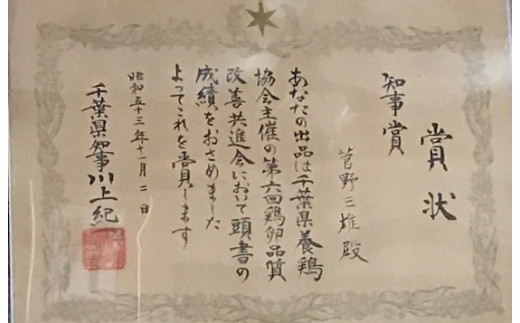 賞状
知事賞
菅野三雄殿
あなたの出品は千葉県養鶏
協会主催の第六回鶏卵品質
改善共進会において頭書の
成績をおさめました
よってこれを賞します
昭和五十三年十一月二日
千葉県知事川上紀一